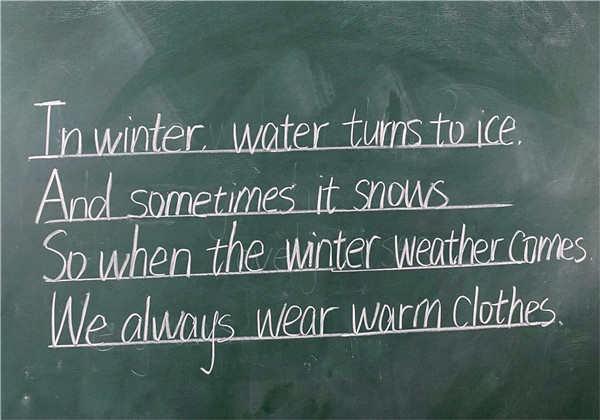 In winter, water turns to ice.
And sometimes it snows
So when the winter weather comes
We always wear warm clothes.